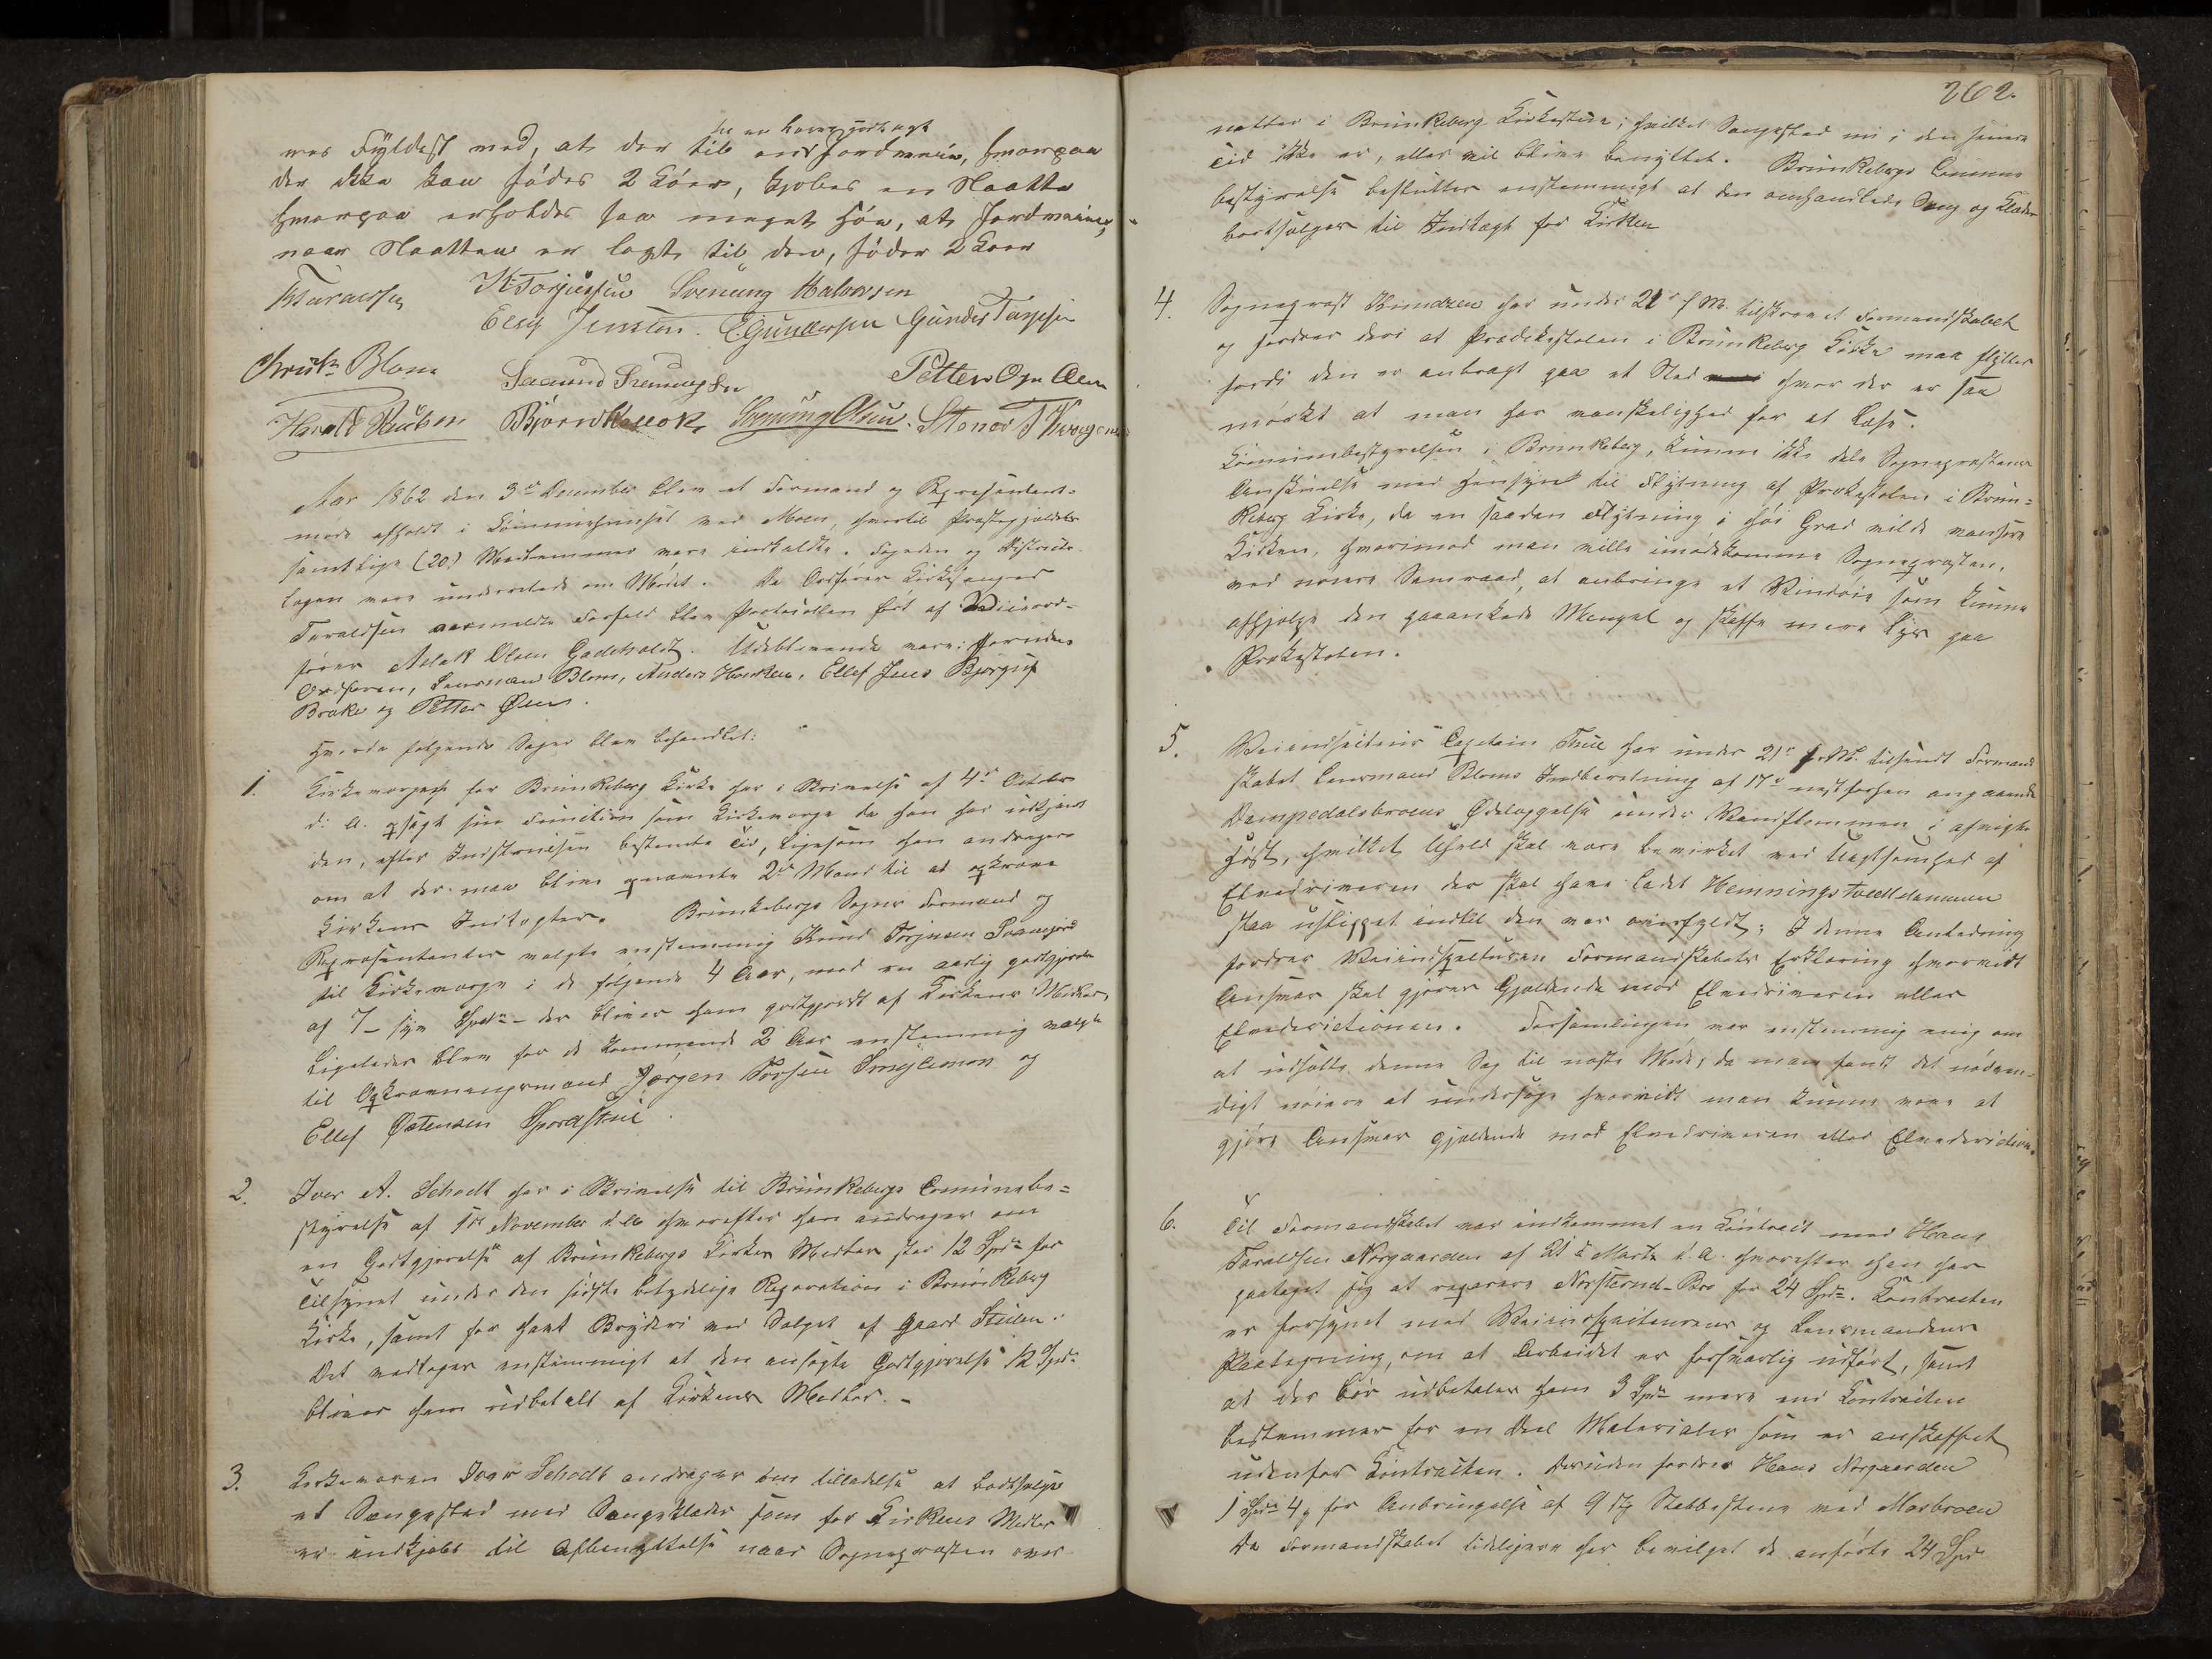 fyldest med, at der til en Jordmain, hvorpaa
der ikke kan fødes 2 Køer, kjøbes en Slaatte
hvorpaa erholdes saa meget Høe, at Jordmainen,
naar Slaatten er lagt til den, føder 2 Koer
K Torjussen Svenung Halvorsen
Ellef Jensen. E Gundersen Gunder Tarjesen
Christn Blom Saamund Svenungsen Petter Ogn Øen
Harald Ruben Bjørn Svenung Olsen. Stener T
Aar 1862 den 3de December blev et Formand og Repræsentant-
møde afholdt i Communehuuset ved Moen, hvortil Præstegjældets
samtlige (20) Medlemmer vare indkaldte. Fogeden og Districts-
lægen vare underrettede om Mødet. Da Ordfører Kirkesanger
Taraldsen anmeldte Forfald blev Protocollen ført af Viceord-
fører Aslak Olsen Gadeholdt. Udeblevende vare: foruden
Ordføreren, Lensmand Blom, Anders Haukom, Ellef Jens Bjørguf
Brake og Petter Øen.
Hvorda følgende Sager blev behandlet:
1. Kirkeværge for Brunkeberg Kirke har i Skrivelse af 4de October
d. A. opsagt sin Function som Kirkeværge da han har udtjent
den, efter Instruxen bestemte Tid, ligesom han andrager
om at der maa blive opnævnte 2de Mænd til at opkræve
Kirkens Indtægter. Brunkebergs Sogns Formænd og
Repræsentanter valgte enstemmig Knud Torjusen
til Kirkeværge i de følgende 4 Aar, med en aarlig godtgjørelse
af 7 - syv Spd - der bliver ham godtgjordt af Kirkens Midler,
Ligeledes blev for de kommende 2 Aar enstemmig valgte
til Opkrævningsmænd Jørgen Torsen Smeylimon og
Ellef Østensen
2. Iver A. Schodt har i Skrivelse til Brunkebergs Communebe=
styrelse af 1ste November d.A. hvorefter han andrager om
en Godtgjørelse af Brunkebergs Kirkes Midler stor 12 Spd for
Tilsynet under den sidste betydelige Reparation i Brunkeberg
Kirke, samt for havt Bryderi ved Salget af Gaard
Det vedtages enstemmigt at den ansøgte Godtgjørelse 12 Spd
bliver ham udbetalt af Kirkens Midler. -
3. Kirkeværgen Iver Schodt andrager om tilladelse at bortsælge
et Sengested med Sengeklæder som for Kirkens Midler
er indkjøbt til Afbenyttelse naar Sognepræsten over-
262.
natter i Brunkeberg Kirkestue; hvilket Sengested nu i den senere
Tid ikke er, eller vil blive benyttet. Brunkebergs Commune
bestyrelse beslutter enstemmigt at den omhandlede Seng og Klæder
bortsælges til Indtægt for Kirken
4. Sognepræst har under 21de f.M. tilskrevet Formandskabet
og fordrer deri at Prædikestolen i Brunkeberg Kirke maa flyttes
fordi den er anbragt paa et Sted hvor der er saa
mørkt at man har vanskelighed for at læse.
Communebestyrelsen i Brunkeberg, kunne ikke dele Sognepræstens
Anskuelse med Hensyn til Flytning af Prækestolen i Brun=
keberg Kirke, da en saadan Flytning i høi Grad vilde vansire
Kirken, hvorimod man ville imødekomme Sognepræsten,
ved nøiere Samraad, at anbringe et Vindøie som kunne
afhjælpe den paaankede Mangel og skaffe mere Lys paa
Prækestolen.
5. Veiinspecteur Captain Thue har under 21de f.M. tilsendt Formand
skabet Lensmand Bloms Indberetning af 17de næstforhen angaaende
Dampedalsbroens Ødelæggelse under Vandflommen i afvigte
Høst, hvilket Uheld skal være bevirket ved Uagtsomhed af
Elvedriveren der skal have ladet Hemningstveitdammen
staa ustigget indtil den var overfyldt; I denne Anledning
fordrer Veiinspecteuren Formandskabets Erklæring hvorvidt
Ansvar skal gjøres Gjældende mod Elvedriveren eller
Elvedirectionen. Forsamlingen var enstemmig enig om
at udsætte denne Sag til næste Møde, da man fandt det nødven-
digt nøiere at undersøge hvorvidt man kunne være at
gjøre Ansvar gjældende mod Elvedriveren eller Elvedirection.
6. Til Formandskabet var indkommet en Contract med Hans
Taraldsen Norgaarden af 21de Marts d.A. hvorefter han har
paataget sig at reparere Norstrand-Bro for 24 Spd. Contracten
er forsynet med Veiinspecteurens og Lensmandens
Paategning, om at Arbeidet er forsvarlig udført, samt
at der bør udbetales ham 3 Spd mere end Contracten
bestemmer for en Deel Materialer som er anskaffet
udenfor Contracten. Desuden fordrer Hans Norgaarden
1 Spd 4 for Anbringelse af 9 st Stabbestene ved Mosbroen
Da Formandskabet tidligere har bevilget de anførte 24 Spd